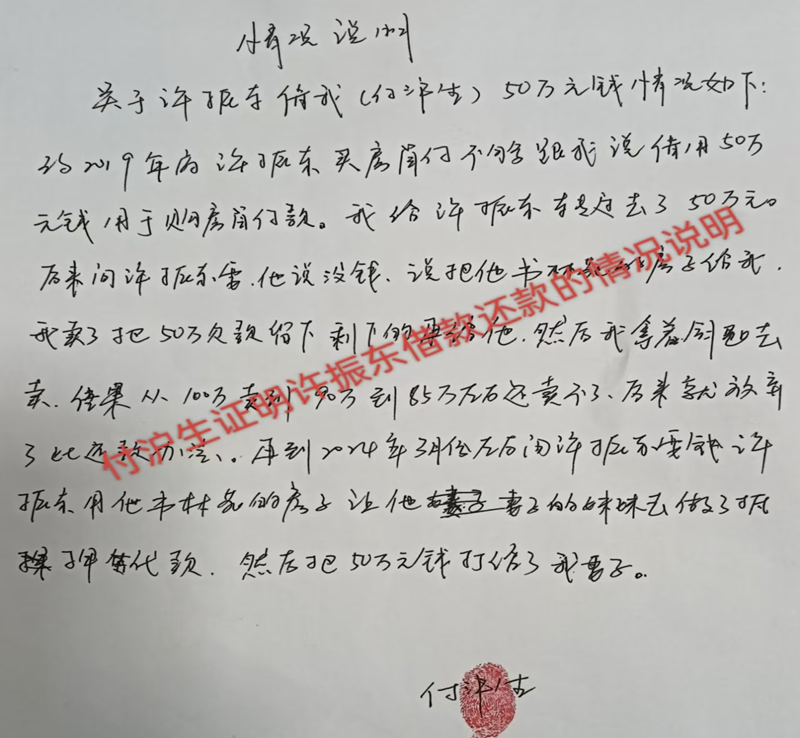 情况说明
关于许振东借我(付沪生)50万元钱情况如下:
约2019年间许振东买房首付不够跟我说借用50万
元钱用于购房首付款。我给许振东转过去了50万元。
后来问许振东要,他说没钱、说把他书 房子给我,
我卖了把50万欠款留下剩下的再给他,然后我拿着钥匙去
卖、结果从100万卖到90万到85万左右还卖不了、后来就放弃
了此还款办法、。再到2024年3月份左右问许振东要钱许
振东用他书林苑的房子让他 妻子的妹妹去做了抵
押 贷款,然后把50万元钱打给了我妻子。
付沪生
付沪生证明许振东借款还款的情况说明